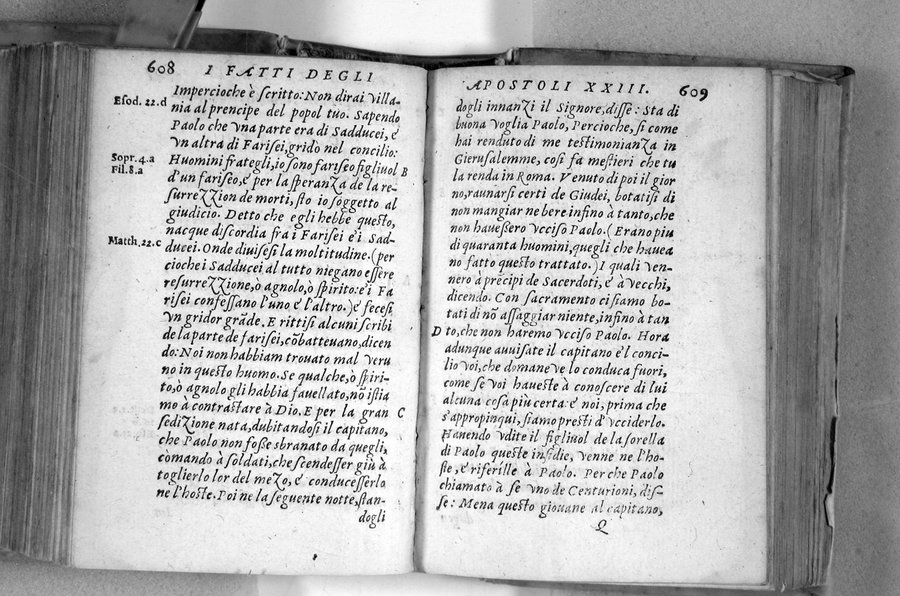 608 I FATTI DEGLI
Impercioche è scritto: Non dirai villa-
Esod. 22.d nia al prencipe del popol tuo. Sapendo
Paolo che vna parte era di Sadducei, e
vn altra di Farisei, gridò nel concilio:
Sopr. 4.a Huomini frategli, io sono fariseo figliuol B
Fil. 8.a d'un fariseo, e per la speranza de la re-
surrezzion de morti, sto io soggetto al
giudicio. Detto che egli hebbe questo,
Matth. 22.c nacque discordia fra i Farisei e i Sad-
ducei. Onde diuisesi la moltitudine. (per
cioche i Sadducei al tutto niegano essere
resurezzione, ò agnolo, ò spirito: e i Fa
risei confessano l'uno e l'altro.) e fecesi
vn gridor grāde. E rittisi alcuni scribi
de la parte de farisei, cōbatteuano, dicen
do: Noi non habbiam trouato mal veru
no in questo huomo. Se qualche, ò spiri-
to, ò agnolo gli habbia fauellato, nō istia
mo à contrastare à Dio. E per la gran C
sedizion nata, dubitandosi il capitano,
che Paolo non fosse sbranato da quegli,
comandò à soldati, che scendesser giù à
toglierlo lor del mezo, e conducesserlo
ne l'hoste. Poi ne la seguente notte, stan-
dogli
APOSTOLI XXIII. 609
dogli innanzi il Signore, disse: Sta di
buona voglia Paolo, Percioche, si come
hai renduto di me testimonianza in
Gierusalemme, così fa mestieri che tu
la renda in Roma. Venuto di poi il gior
no, raunarsi certi de Giudei, botatisi di
non mangiar ne bere infino à tanto, che
non hauessero vcciso Paolo. (Erano piu
di quaranta huomini, quegli che hauea
no fatto questo trattato.) I quali ven-
nero à prēcipi de Sacerdoti, e à vechi,
dicendo: Con sacramento ci siamo bo-
tati di nō assaggiar niente, infino à tan
D to, che non haremo vcciso Paolo. Hora
adunque auuisate il capitano e'l conci-
lio voi, che domane ve lo conduca fuori,
come se voi haueste à conoscere di lui
alcuna cosa più certa: e noi, prima che
s'appropinqui, siamo presti d'vcciderlo.
Hauendo vdite il figliuol de la sorella
di Paolo queste insidie, venne ne l'ho-
ste, e riferille à Paolo. Perche Paolo
chiamato à se vno de Centurioni, dis-
se: Mena questo giouane al capitano,
Q